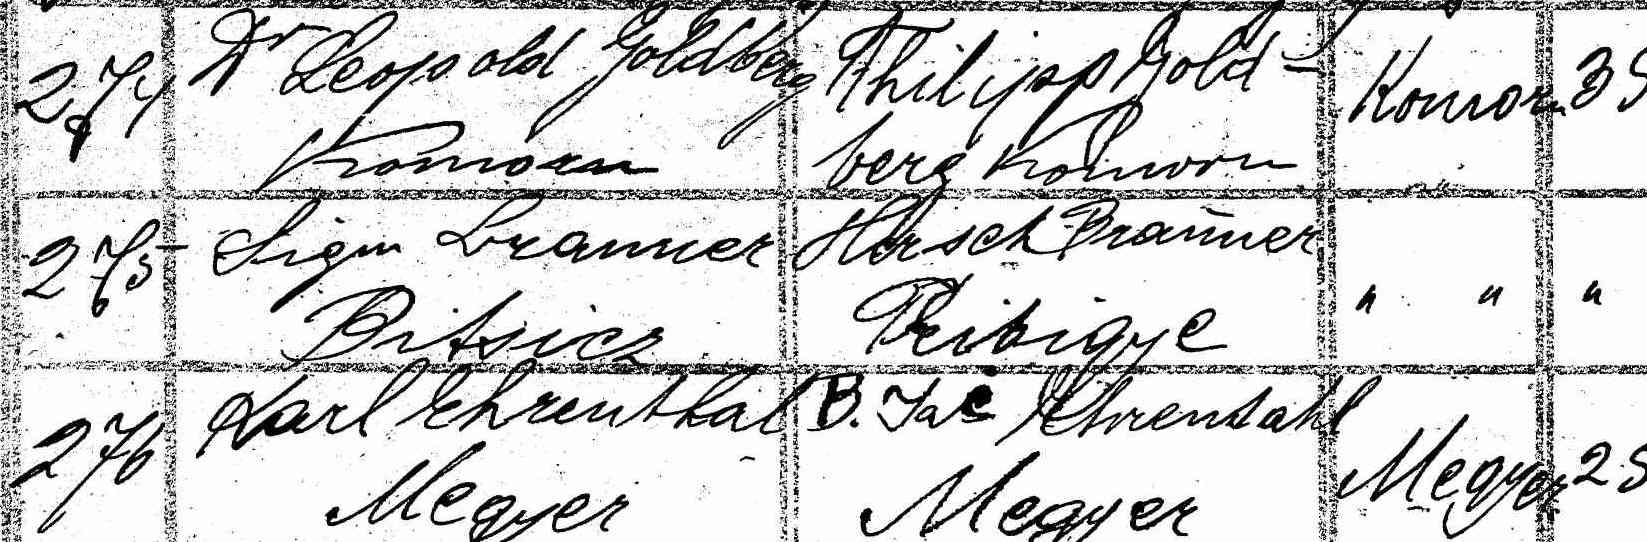 274 Dr Leopold Goldberg Philipp Gold- Komorn 35
Komorn berg Komorn
275 Sigm Brauner Hirsch Brauner
Bitsicz " " "
276 Karl Ehrenthal B. Jac Ehrentahl
Megyer Megyer Megyer 25